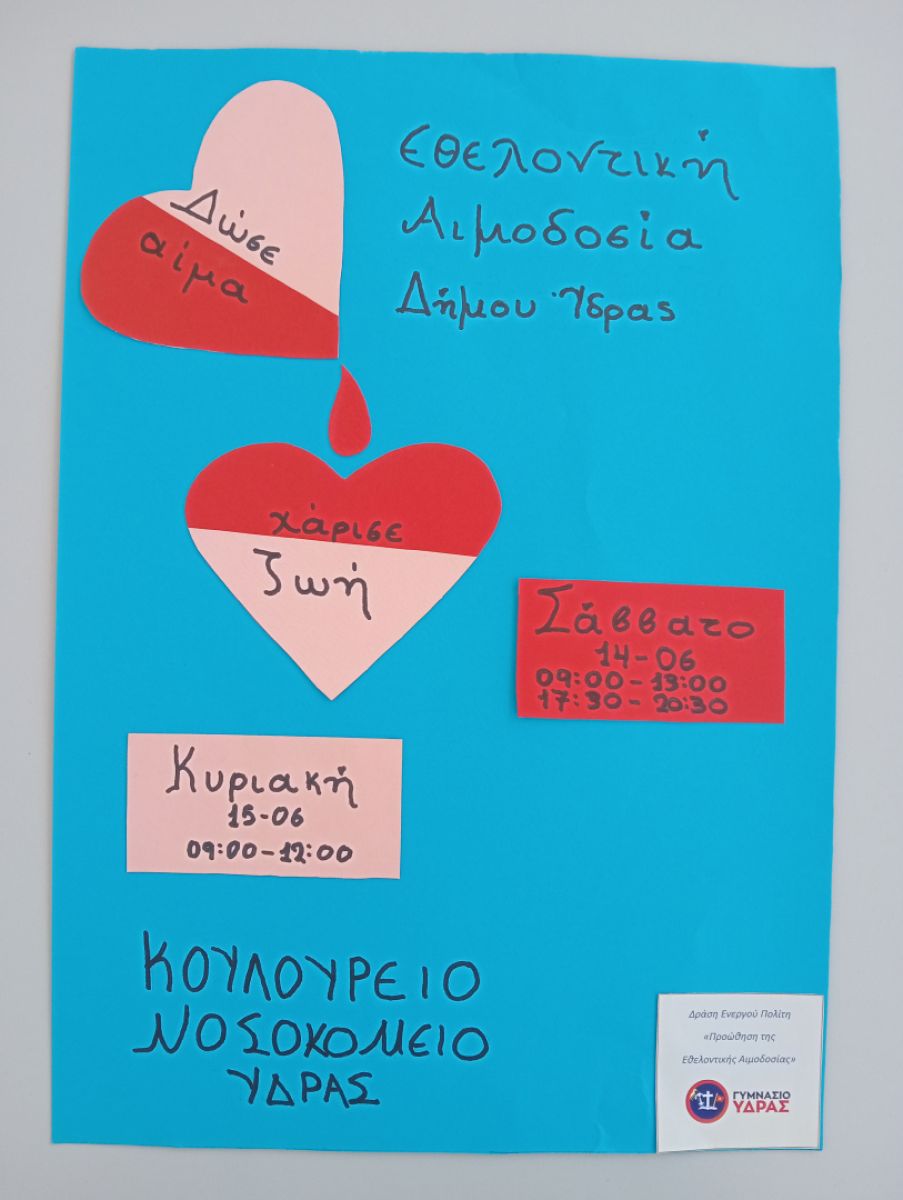 Δώσε
αίμα
Εθελοντική
Αιμοδοσία
Δήμου Ύδρας
χάρισε
ζωή
Σάββατο
14-06
09:00-13:00
17:30-20:30
Κυριακή
15-06
09:00-12:00
ΚΟΥΛΟΥΡΕΙΟ
ΝΟΣΟΚΟΜΕΙΟ
ΥΔΡΑΣ
Δράση Ενεργού Πολίτη
«Προώθηση της
Εθελοντικής Αιμοδοσίας»
ΓΥΜΝΑΣΙΟ
ΥΔΡΑΣ